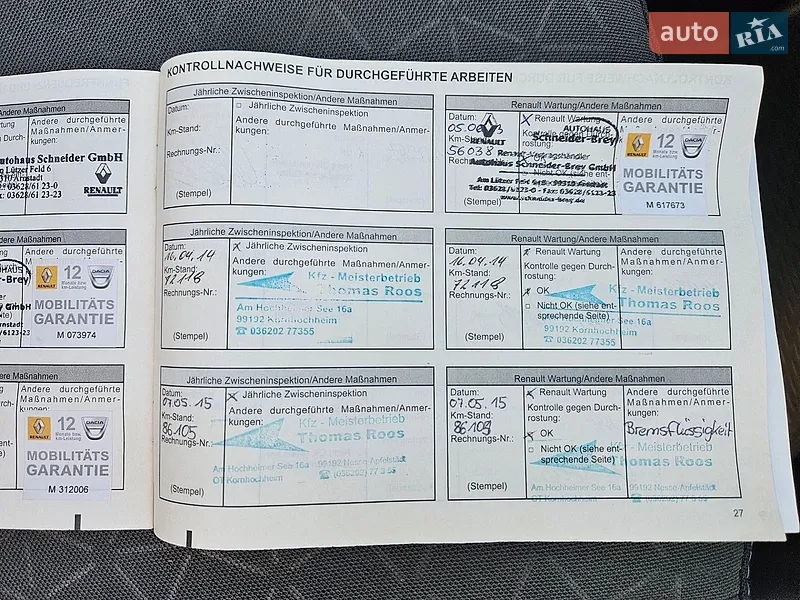 auto RIA.com
KONTROLLNACHWEISE FÜR DURCHGEFÜHRTE ARBEITEN
Andere Maßnahmen
Andere durchgeführte
Maßnahmen/Anmer-
kungen:
Autohaus Schneider GmbH
m Lützer Feld 6
310 Arnstadt
03628/61 23-0
x: 03628/61 23-23
RENAULT
dere Maßnahmen
Andere durchgeführte
RENAULT 12 Monate bzw. km-Leistung DACIA
MOBILITÄTS
GARANTIE
M 073974
dere Maßnahmen
Andere durchgeführte
Maßnahmen/Anmer-
kungen:
RENAULT 12 Monate bzw. km-Leistung DACIA
MOBILITÄTS
GARANTIE
M 312006
Jährliche Zwischeninspektion/Andere Maßnahmen
Datum:
Km-Stand:
Rechnungs-Nr.:
(Stempel)
□ Jährliche Zwischeninspektion
Andere durchgeführte Maßnahmen/Anmer-
kungen:
Renault Wartung/Andere Maßnahmen
Datum:
Km-Stand:
56038
(Stempel)
RENAULT
x Renault Wartung
Kontrolle gegen Durch-
rostung:
x OK
Nicht OK (siehe ent-
AUTOHAUS
Schneider-Brey
Renault Vertragshändler
Autohaus Schneider-Brey GmbH
Am Lützer Feld 6+8 - 99310 Arnstadt
Tel: 03628/6123-0 - Fax: 03628/6123-23
www.schneider-brey.de
RENAULT 12 Monate bzw. km-Leistung DACIA
MOBILITÄTS
GARANTIE
M 617673
Jährliche Zwischeninspektion/Andere Maßnahmen
Datum:
16.04.14
Km-Stand:
72118
Rechnungs-Nr.:
(Stempel)
x Jährliche Zwischeninspektion
Andere durchgeführte Maßnahmen/Anmer-
kungen:
Kfz - Meisterbetrieb
Thomas Roos
Am Hochheimer See 16a
99192 Kornhochheim
☎ 036202 77355
Renault Wartung/Andere Maßnahmen
Datum:
16.04.14
Km-Stand:
72118
Rechnungs-Nr.:
(Stempel)
x Renault Wartung
Kontrolle gegen Durch-
rostung:
x OK
□ Nicht OK (siehe ent-
sprechende Seite)
Andere durchgeführte
Maßnahmen/Anmer-
kungen:
Kfz - Meisterbetrieb
Thomas Roos
Am Hochheimer See 16a
99192 Kornhochheim
☎ 036202 77355
Jährliche Zwischeninspektion/Andere Maßnahmen
Datum:
07.05.15
Km-Stand:
86105
Rechnungs-Nr.:
(Stempel)
x Jährliche Zwischeninspektion
Andere durchgeführte Maßnahmen/Anmer-
kungen:
Kfz - Meisterbetrieb
Thomas Roos
Am Hochheimer See 16a 99192 Nesse-Apfelstädt
OT Kornhochheim ☎ (036202) 77 3 55
Renault Wartung/Andere Maßnahmen
Datum:
07.05.15
Km-Stand:
86109
Rechnungs-Nr.:
(Stempel)
x Renault Wartung
Kontrolle gegen Durch-
rostung:
x OK
□ Nicht OK (siehe ent-
sprechende Seite)
Andere durchgeführte
Maßnahmen/Anmer-
kungen:
Bremsflüssigkeit
Kfz - Meisterbetrieb
Thomas Roos
Am Hochheimer See 16a 99192 Nesse-Apfelstädt
OT Kornhochheim ☎ (036202) 77 3 55
27